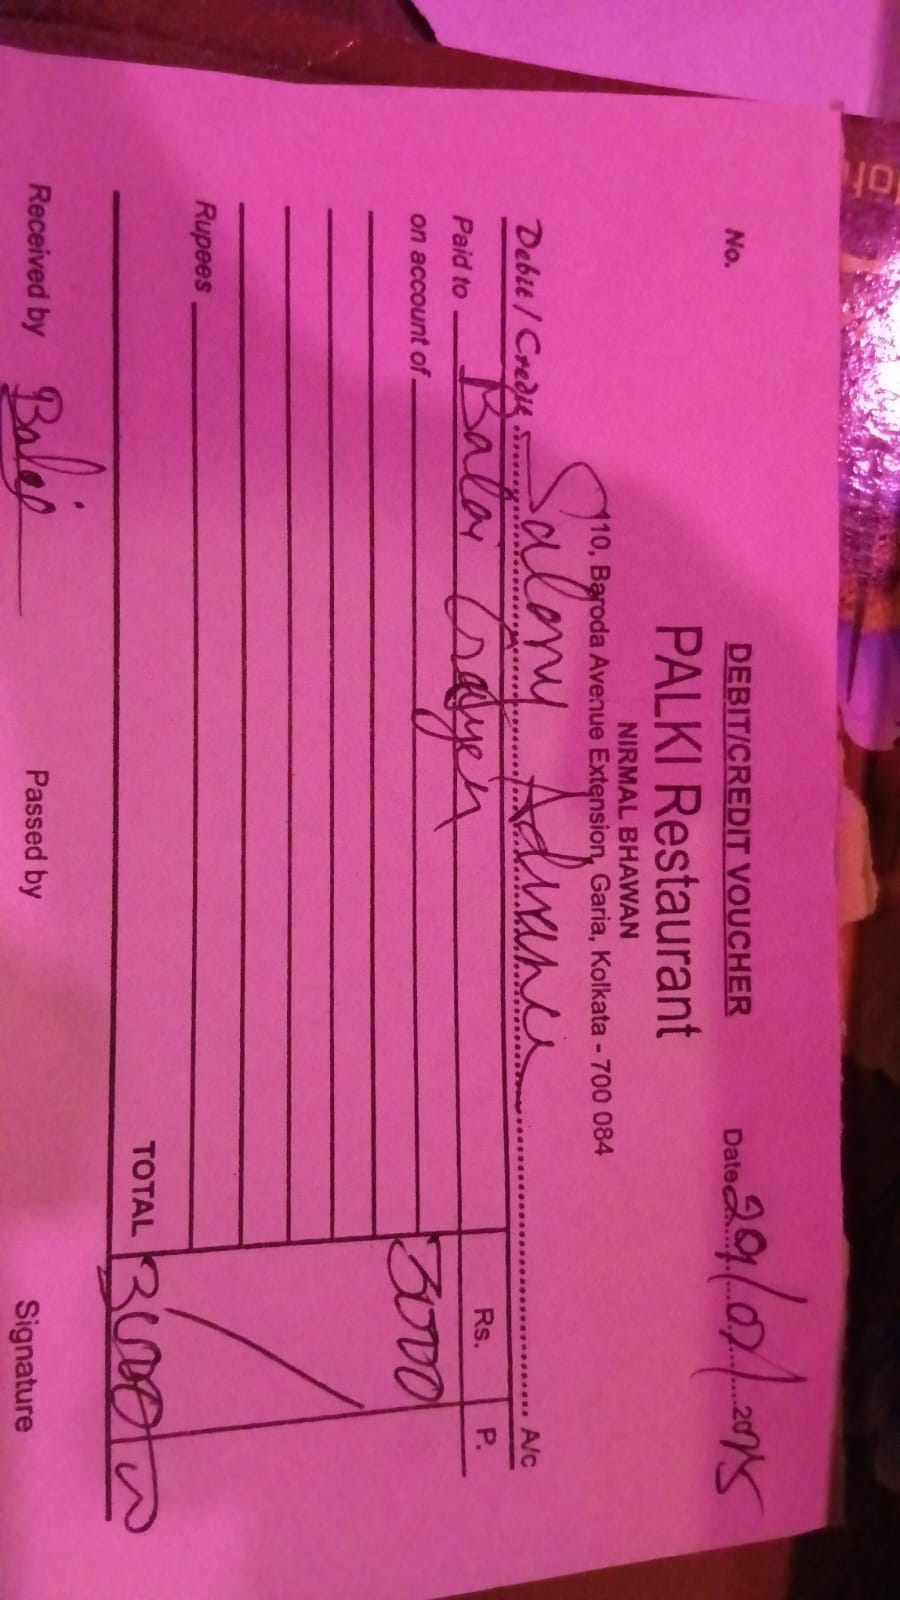 DEBIT/CREDIT VOUCHER
No.
Date 29/07/2025
PALKI Restaurant
NIRMAL BHAWAN
110, Baroda Avenue Extension, Garia, Kolkata - 700 084
Debit / Credit Salary Advance A/c
Paid to Balai Rs. P.
on account of 3000
Rupees
TOTAL 3000
Received by Balai Passed by Signature